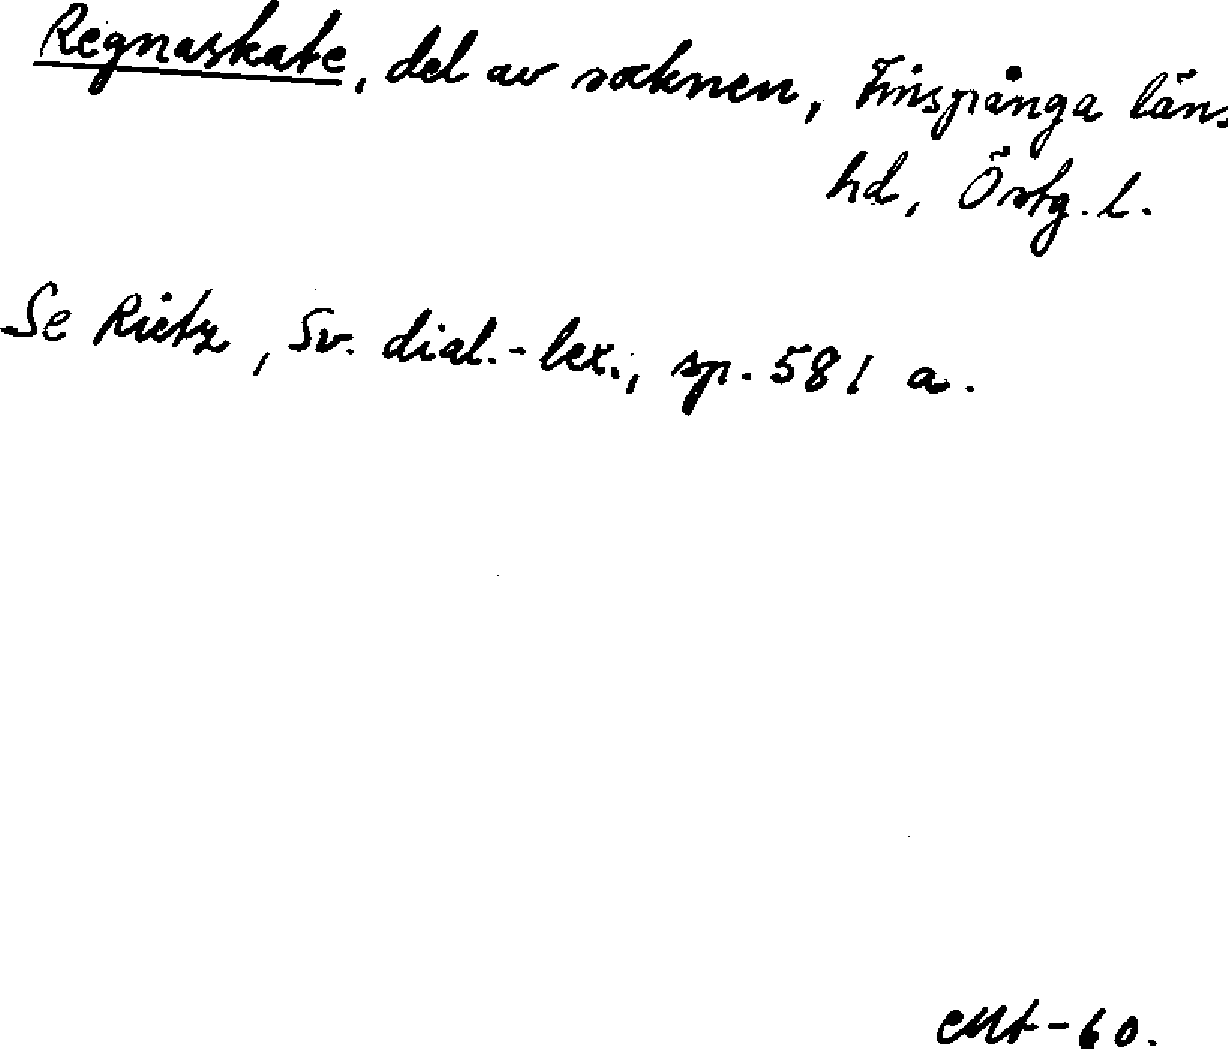 Regnaskate, del av socknen, Finspånga läns
hd, Östg. l.
Se Rietz, Sv. dial.-lex., sp. 581 a.
-60.